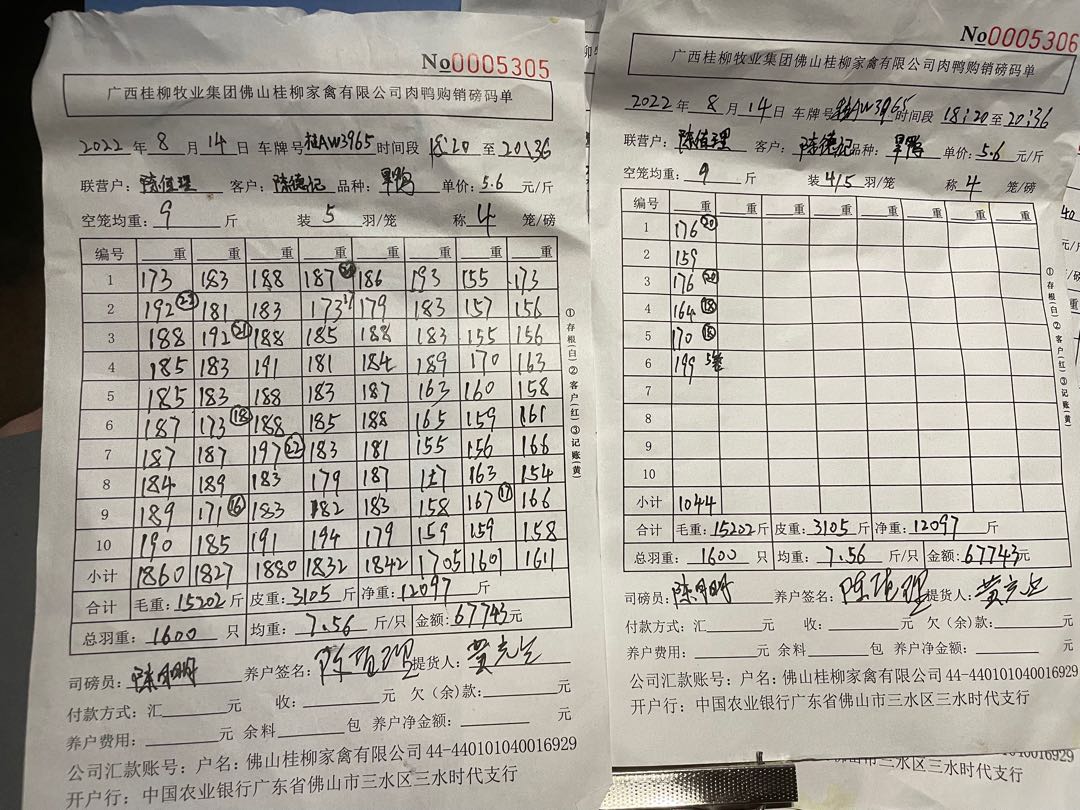 No0005305
广西桂柳牧业集团佛山桂柳家禽有限公司肉鸭购销磅码单
2022 年 8 月 14 日 车牌号桂AW3965时间段 18:20 至 20:36
联营户: 陈值理 客户: 陈德记 品种: 旱鸭 单价: 5.6 元/斤
空笼均重: 9 斤 装 5 羽/笼 称 4 笼/磅
编号 重 重 重 重 重 重 重 重
1 173 183 188 187 186 193 155 173
2 192 (22) 181 183 173 179 183 157 156
3 188 192 (21) 188 185 188 183 155 156
4 185 183 191 181 184 189 170 163
5 185 183 188 183 187 163 160 158
6 187 173 (18) 188 185 188 165 159 161
7 187 187 197 (22) 183 181 155 156 166
8 184 189 183 179 187 157 163 154
9 189 171 (16) 183 182 183 158 167 (17) 166
10 190 185 191 194 179 159 159 158
小计 1860 1827 1880 1832 1842 1705 1601 1611
合计 毛重: 15202 斤 皮重: 3105 斤 净重: 12097 斤
总羽重: 1600 只 均重: 7.56 斤/只 金额: 67743 元
司磅员: 养户签名: 陈值理 提货人: 黄
付款方式: 汇 元 收: 元 欠 (余) 款: 元
养户费用: 元 余料 包 养户净金额: 元
公司汇款账号: 户名: 佛山桂柳家禽有限公司 44-440101040016929
开户行: 中国农业银行广东省佛山市三水区三水时代支行
①存根(白)②客户(红)③记账(黄)
No0005306
广西桂柳牧业集团佛山桂柳家禽有限公司肉鸭购销磅码单
2022 年 8 月 14 日 车牌号桂AW3965时间段 18:20 至 20:36
联营户: 陈值理 客户: 陈德记 品种: 旱鸭 单价: 5.6 元/斤
空笼均重: 9 斤 装 4/5 羽/笼 称 4 笼/磅
编号 重 重 重 重 重 重 重 重
1 176 (20)
2 159
3 176 (20)
4 164 (18)
5 170 (18)
6 199 5笼
7
8
9
10
小计 1044
合计 毛重: 15202 斤 皮重: 3105 斤 净重: 12097 斤
总羽重: 1600 只 均重: 7.56 斤/只 金额: 67743 元
司磅员: 养户签名: 陈值理 提货人: 黄
付款方式: 汇 元 收: 元 欠 (余) 款: 元
养户费用: 元 余料 包 养户净金额: 元
公司汇款账号: 户名: 佛山桂柳家禽有限公司 44-440101040016929
开户行: 中国农业银行广东省佛山市三水区三水时代支行
①存根(白)②客户(红)③记账(黄)